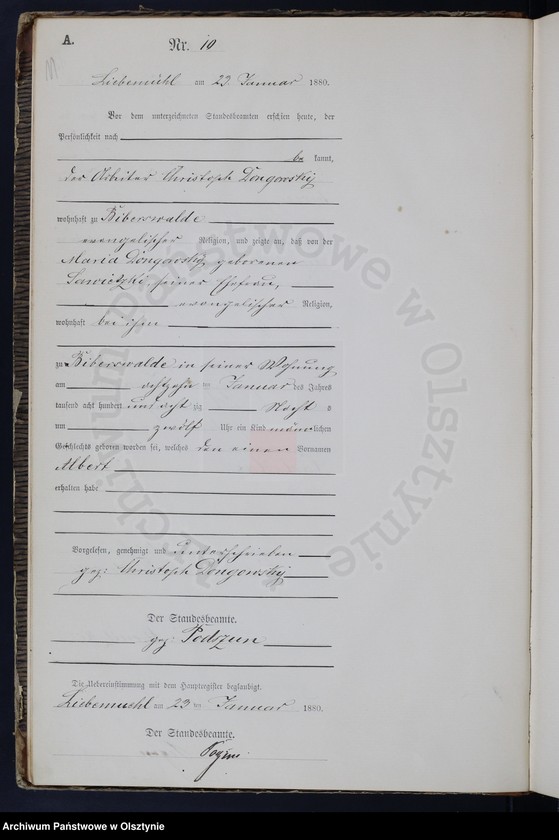 A.
Nr. 10
Liebemühl am 23 Januar 1880.
Vor dem unterzeichneten Standesbeamten erschien heute, der
Persönlichkeit nach
be kannt,
der Arbeiter Christoph Dongowsky
wohnhaft zu Biberswalde
evangelischer Religion, und zeigte an, daß von der
Maria Dongowsky, geborenen
seiner Ehefrau,
evangelischer Religion,
wohnhaft bei ihm
zu Biberswalde in seiner Wohnung
am achtzehn ten Januar des Jahres
tausend acht hundert und acht zig Nacht s
um zwölf Uhr ein Kind männlichen
Geschlechts geboren worden sei, welches den einen Vornamen
Albert
erhalten habe
Vorgelesen, genehmigt und unterschrieben
gez: Christoph Dongowsky
Der Standesbeamte.
gez: Podszun
Die Uebereinstimmung mit dem Hauptregister beglaubigt.
Liebemuehl am 23 ten Januar 1880.
Der Standesbeamte.
Archiwum Państwowe w Olsztynie
Archiwum Państwowe w Olsztynie